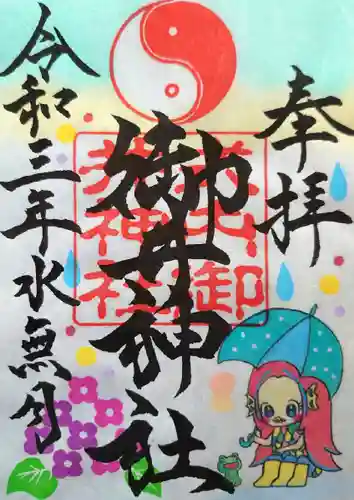 奉拝
御井神社
令和三年水無月
御
神社